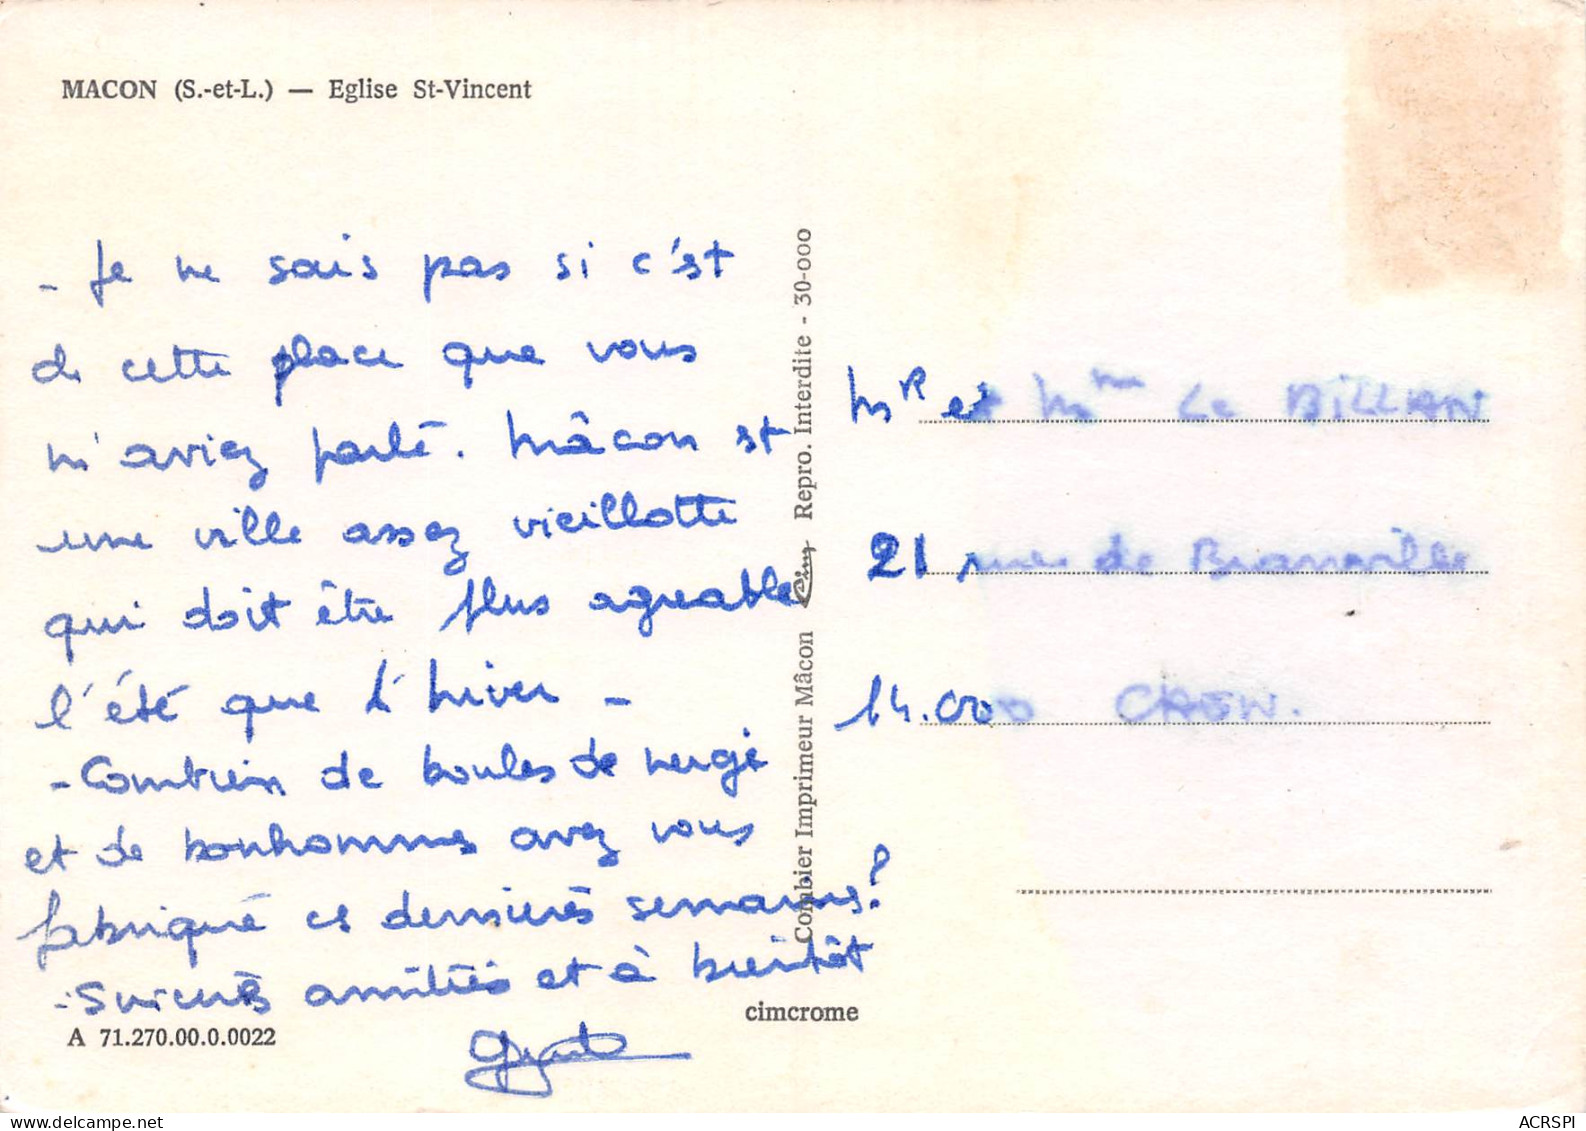 MACON (S.-et-L.) — Eglise St-Vincent
- Je ne sais pas si c'est
de cette place que vous
m'aviez parlé. Mâcon est
une ville assez vieillotte
qui doit être plus agreable
l'été que l'hiver -
- Combien de boules de neige
et de bonhommes avez vous
fabriqué ces dernières semaines?
- Sincères amitiés et à bientôt
A 71.270.00.0.0022
Combier Imprimeur Mâcon Cim Repro. Interdite - 30-000
cimcrome
Mr et Mme Le BILLAN
21 rue de
14.000 CAEN.
ACRSPI